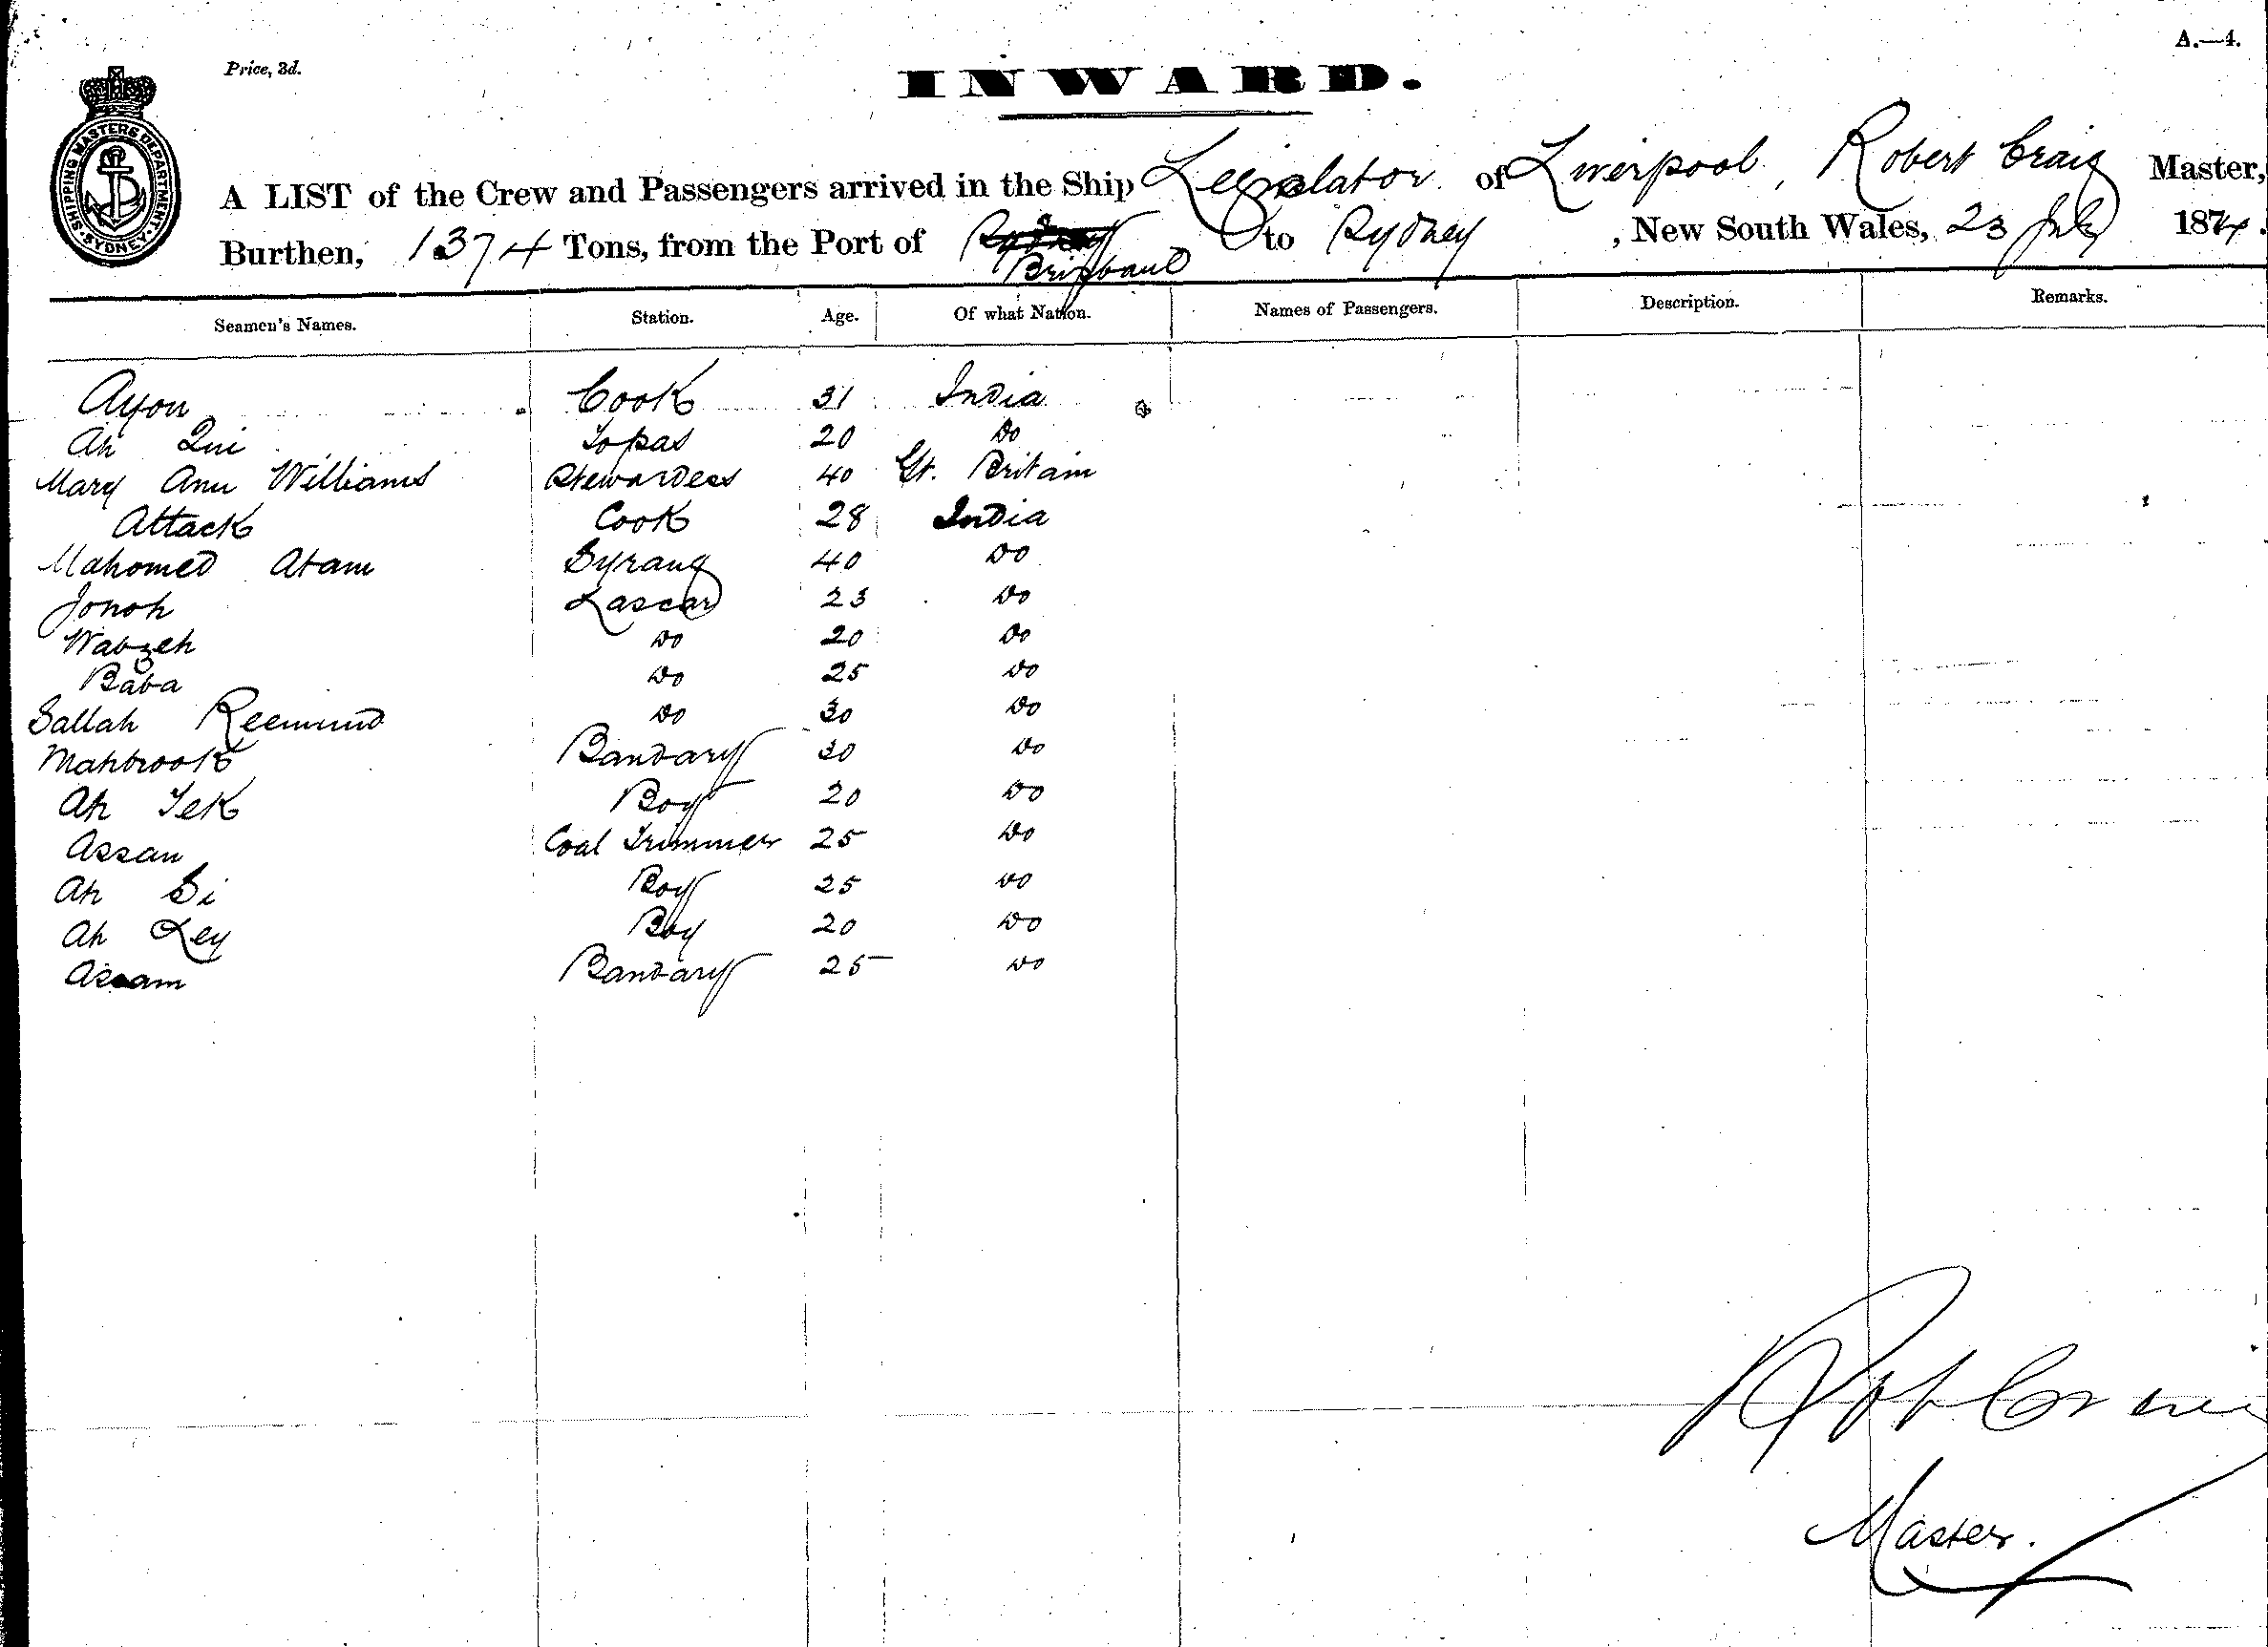 A.—4.
Price, 3d.
INWARD.
SHIPPING MASTERS DEPARTMENT · SYDNEY ·
A LIST of the Crew and Passengers arrived in the Ship Legislator of Liverpool, Robert Craig Master,
Burthen, 1374 Tons, from the Port of Brisbane to Sydney, New South Wales, 23 July 1874.
Seamen's Names. Station. Age. Of what Nation. Names of Passengers. Description. Remarks.
Ayon Cook 31 India
Ah Qui Topas 20 Do
Mary Ann Williams Stewardess 40 Gt. Britain
Attack Cook 28 India
Mahomed Atam Syrang 40 Do
Jonoh Lascar 23 Do
Wabzeh Do 20 Do
Baba Do 25 Do
Sallah Do 30 Do
Mahbrook Bandary 30 Do
Ah Tek Boy 20 Do
Assan Coal Trimmer 25 Do
Ah Si Boy 25 Do
Ah Ley Boy 20 Do
Assam Bandary 25 Do
Robt Craig
Master.